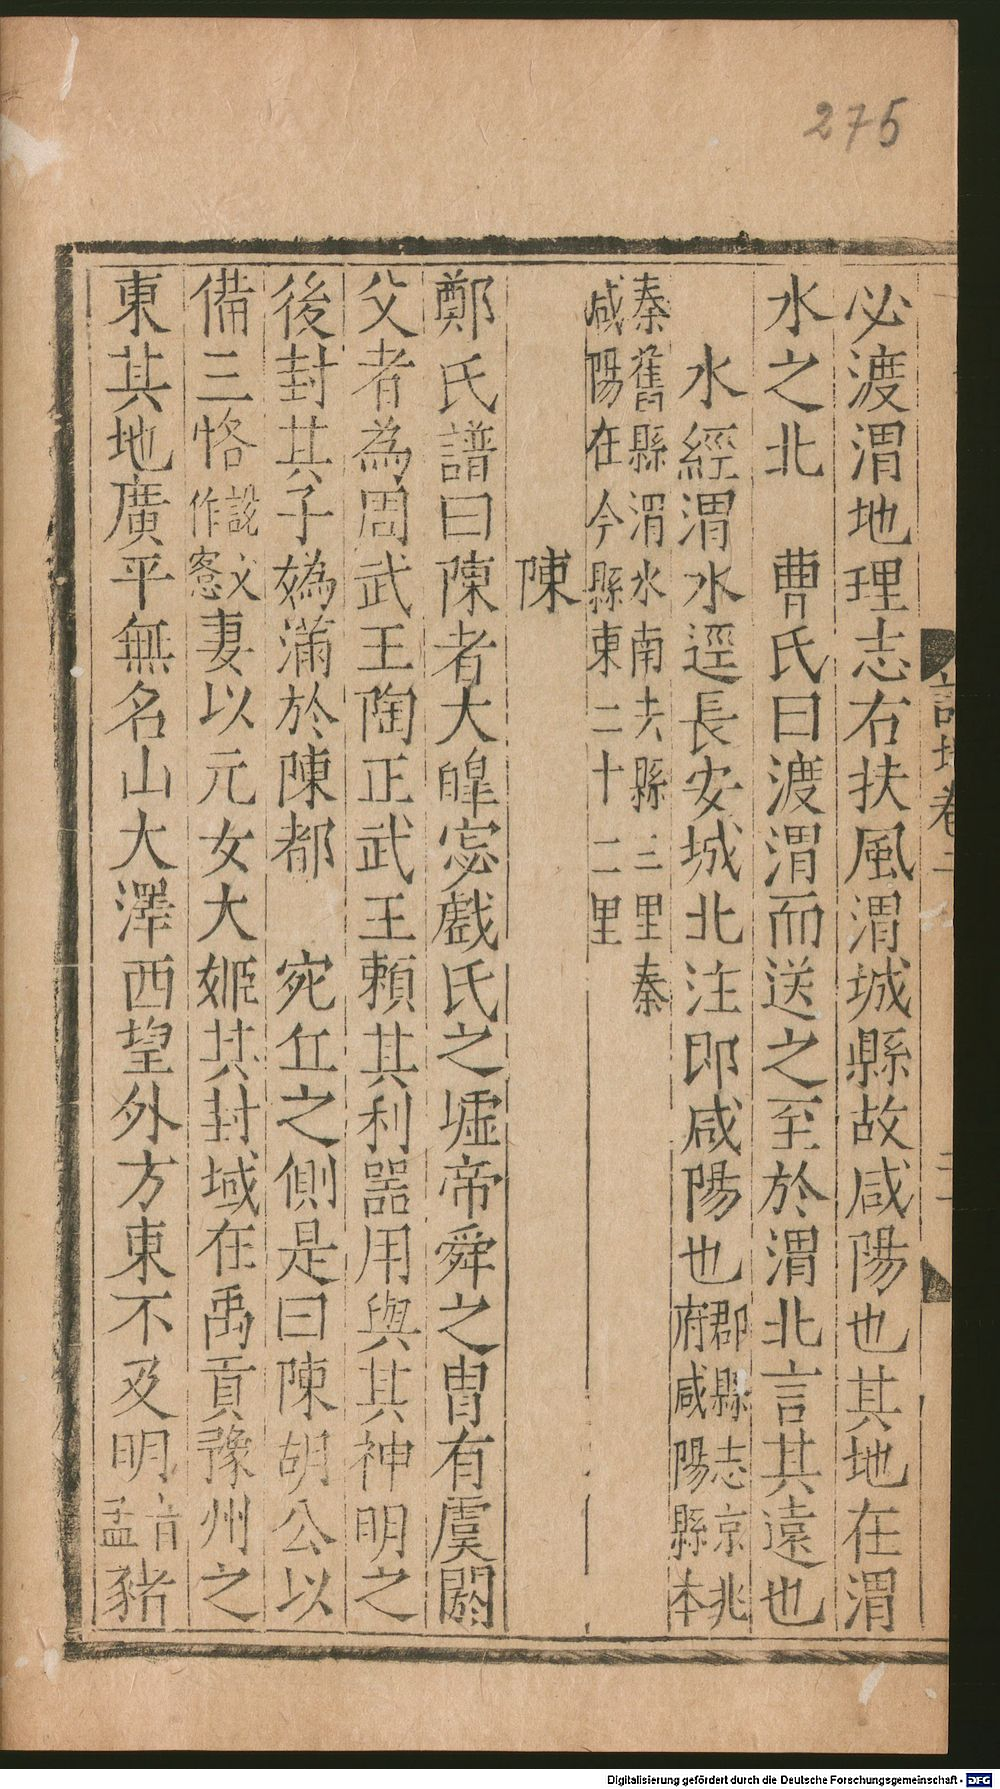 275
必渡渭地理志右扶風渭城縣故咸陽也其地在渭
水之北 曹氏曰渡渭而送之至於渭北言其遠也
水經渭水逕長安城北注即咸陽也郡縣志京兆府咸陽縣本
秦舊縣渭水南去縣三里秦
咸陽在今縣東二十二里
陳
鄭氏譜曰陳者大皥宓戲氏之墟帝舜之胄有虞閼
父者為周武王陶正武王賴其利器用與其神明之
後封其子媯滿於陳都 宛丘之側是曰陳胡公以
備三恪說文作愙妻以元女大姬其封域在禹貢豫州之
東其地廣平無名山大澤西望外方東不及明音孟豬
Digitalisierung gefördert durch die Deutsche Forschungsgemeinschaft - DFG